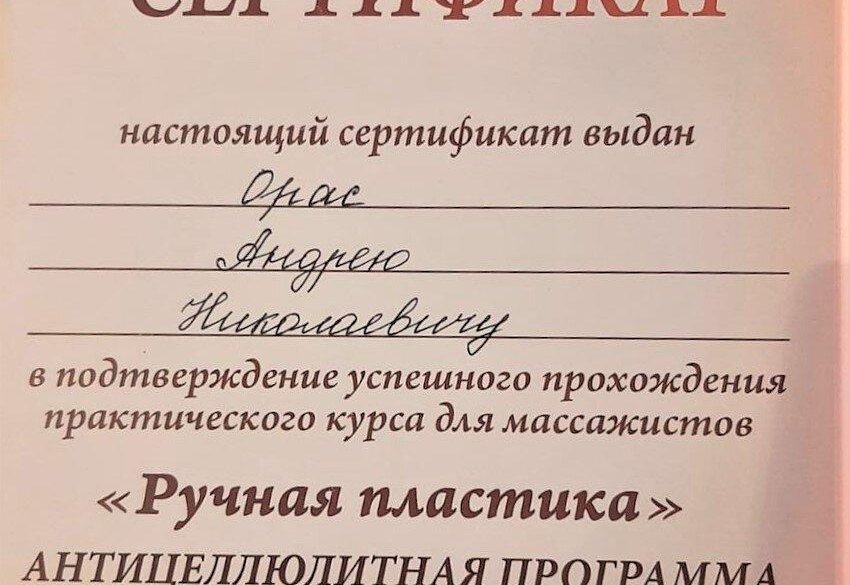 СЕРТИФИКАТ
настоящий сертификат выдан
Орас
Андрею
Николаевичу
в подтверждение успешного прохождения
практического курса для массажистов
«Ручная пластика»
АНТИЦЕЛЛЮЛИТНАЯ ПРОГРАММА